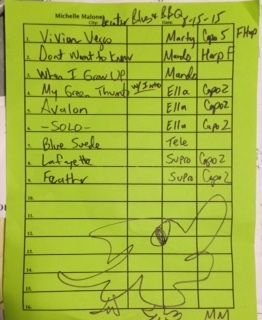 Michelle Malone
City: Decatur Blues & BBQ Date: 8-15-15
1. Vivian Vegas Marty Capo 5 F Harp
2. Dont Want to Know Mando Harp F
3. When I Grow Up Mando
4. My Green Thumb w/ Intro Ella Capo 2
5. Avalon Ella Capo 2
6. - SOLO - Ella Capo 2
7. Blue Suede Tele
8. Lafayette Supro Capo 2
9. Feather Supro Capo 2
10.
11.
12.
13.
14.
15.
16. MM